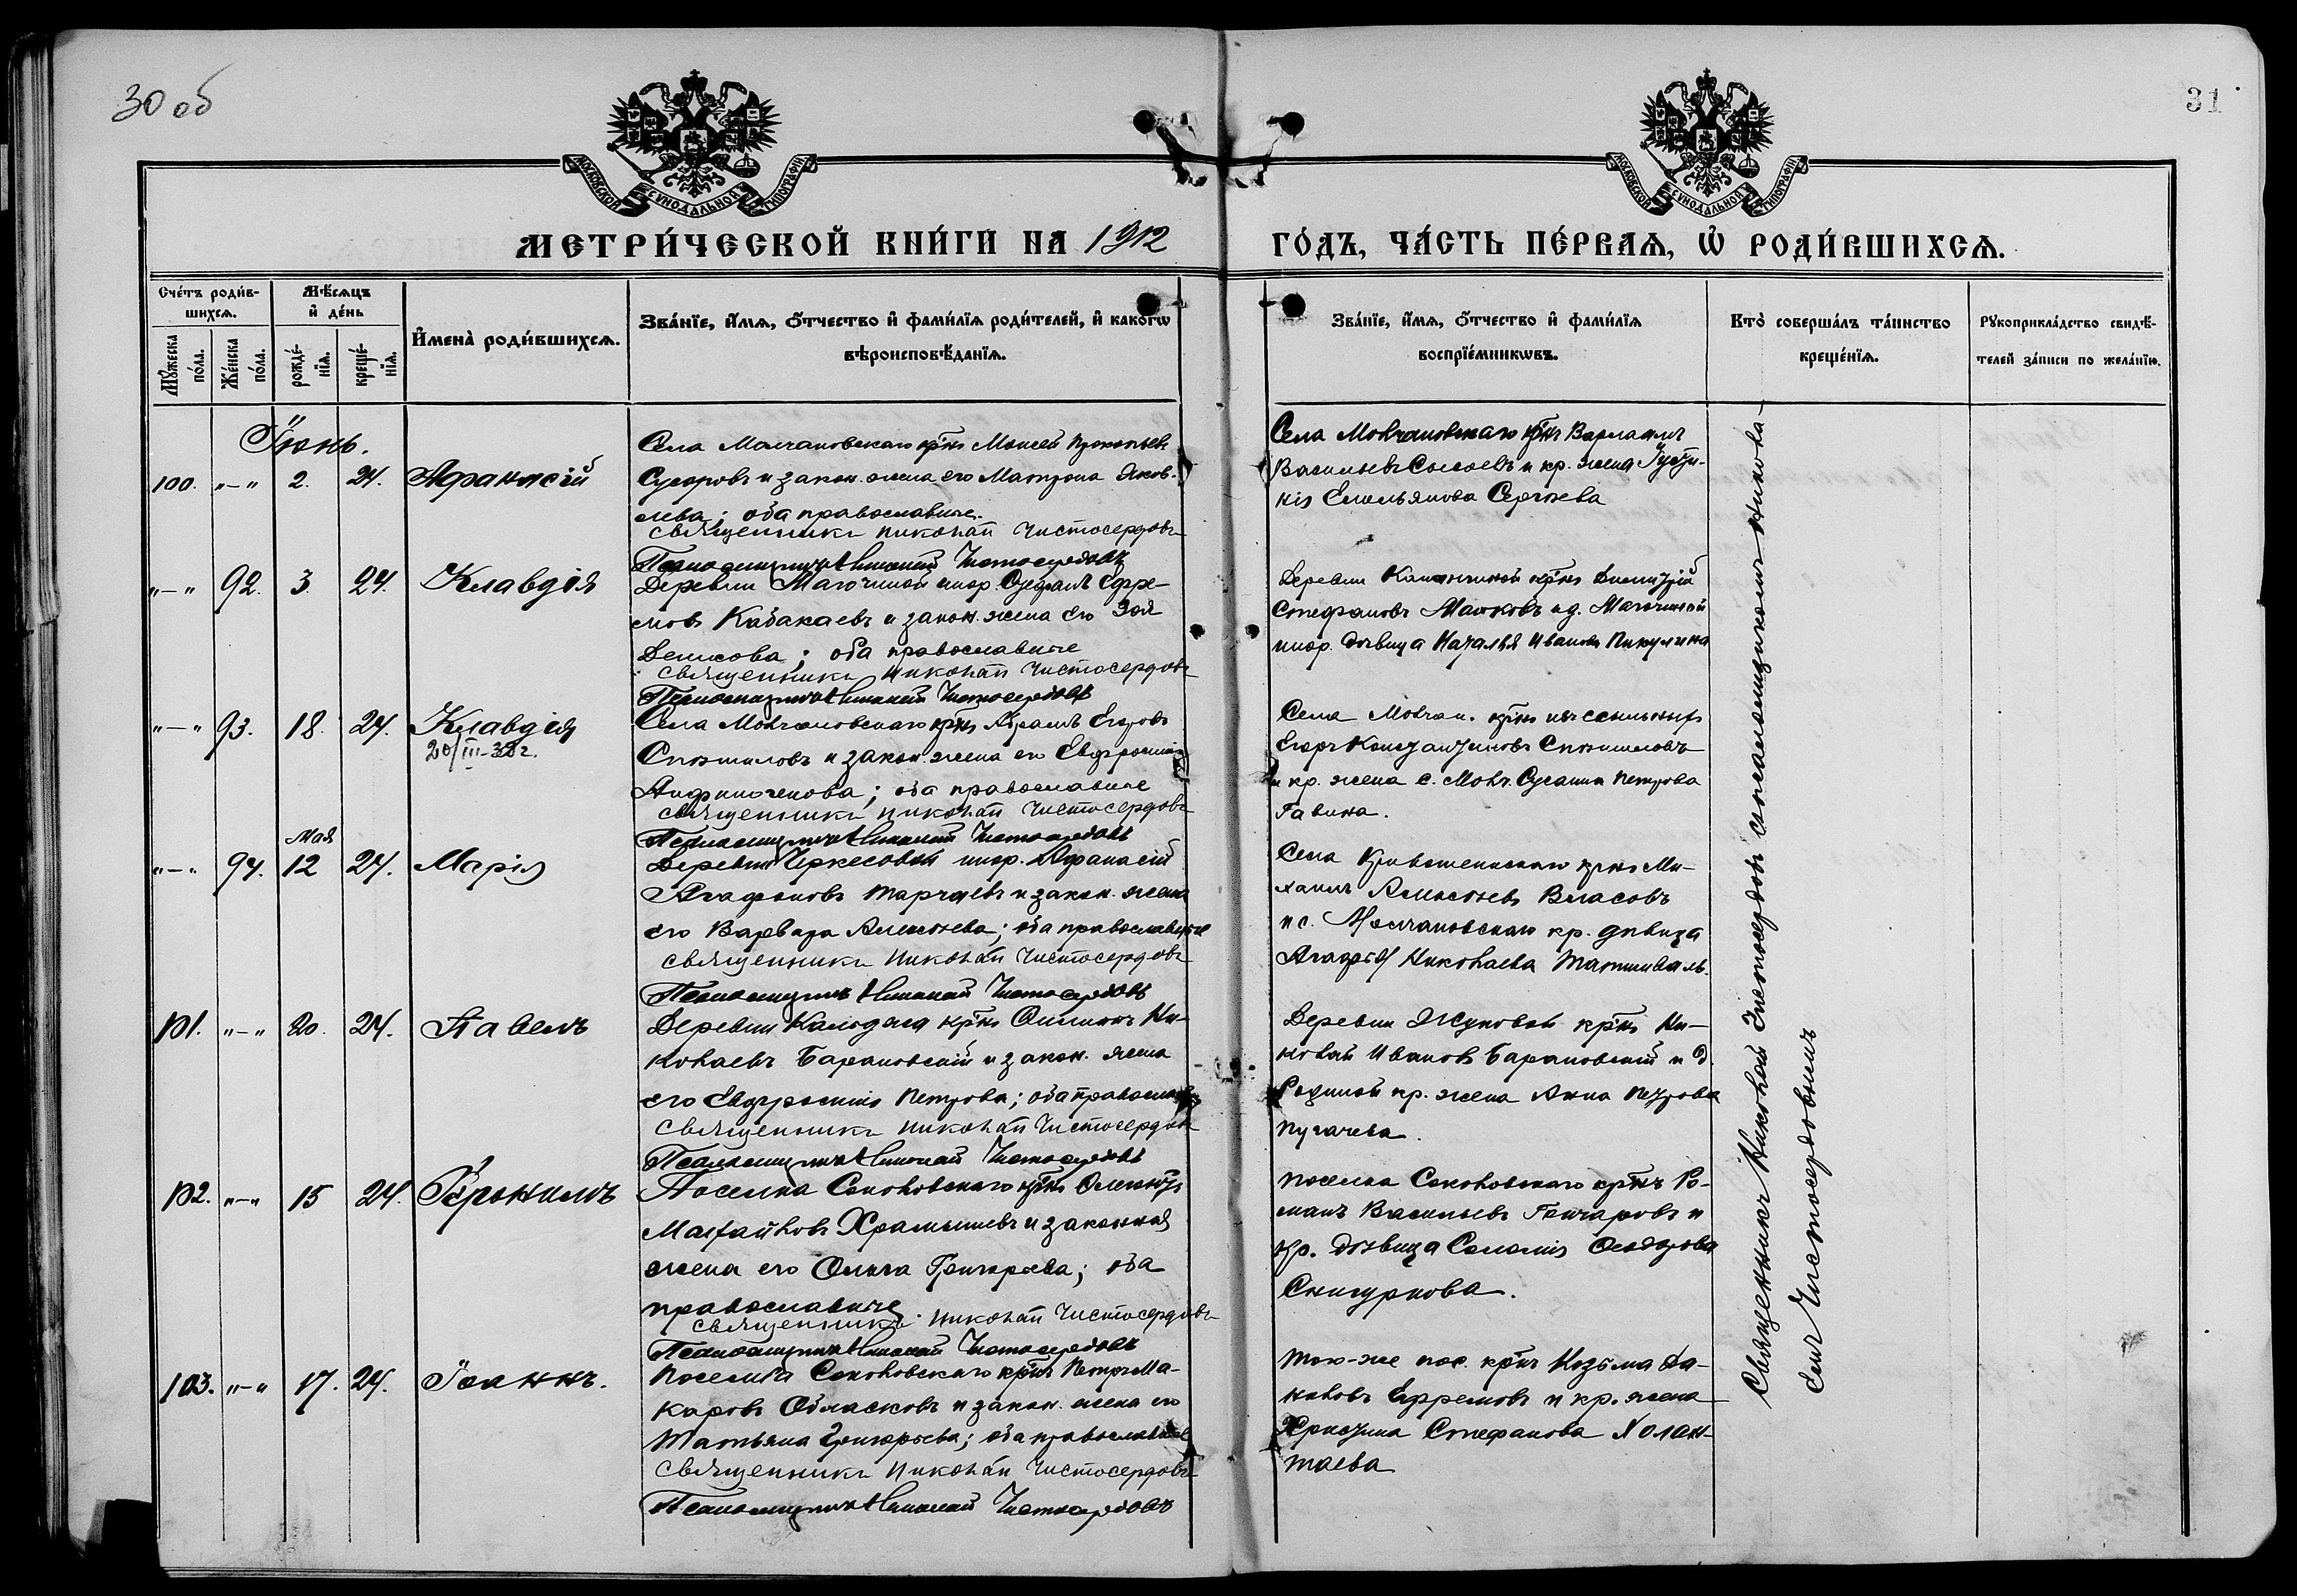 30 об
31
МОСКОВСКОЙ СУНОДАЛЬНОЙ ТИПОГРАФІИ
МОСКОВСКОЙ СУНОДАЛЬНОЙ ТИПОГРАФІИ
МЕТРИ́ЧЕСКОЙ КНИ́ГИ НА 1912
ГО́ДЪ, ЧА́СТЬ ПЕ́РВАѦ, Ѡ РОДИ́ВШИХСѦ.
Сче́тъ роди́в-
шихсѧ.
Мꙋ́жеска по́ла.
Же́нска по́ла.
Мѣ́сѧцъ
и҆ де́нь
рожде́-
нїѧ.
креще́-
нїѧ.
И҆мена̀ роди́вшихсѧ.
Зва́нїе, и҆́мѧ, ѻ҆́тчество и҆ фами́лїѧ роди́телей, и҆ како́гѡ
вѣроисповѣ́данїѧ.
Зва́нїе, и҆́мѧ, ѻ҆́тчество и҆ фами́лїѧ
воспрїе́мникѡвъ.
Кто̀ соверша́лъ та́инство
креще́нїѧ.
Рꙋкоприкла́дство свидѣ́-
телей за́писи по жела́нїю.
Іюнь.
100. „—„ 2. 24. Афанасій
Села Молчановскаго кр̃нъ Моисей Прокопьевъ
Сидоровъ и закон. жена его Матрона Яков-
лева; оба православные.
священникъ Николай Чистосердовъ
Псаломщикъ Николай Чистосердовъ
Села Молчановскаго кр̃нъ Варлаамъ
Васильевъ Сысоевъ и кр. жена Іусти-
нія Емельянова Сергѣева
„—„ 92. 3. 24. Клавдія
Деревни Магочиной инор. Ефре-
мовъ Кабакаевъ и закон. жена его Зоя
Денисова; оба православные
священникъ Николай Чистосердовъ
Псаломщикъ Николай Чистосердовъ
Деревни кр̃нъ Димитрій
Стефановъ и д. Магочиной
инор. дѣвица Наталья Иванова Пикулина
„—„ 93. 18. 24. Клавдія
20/III-38 г.
Села Молчановскаго кр̃нъ Абрамъ Егоровъ
и закон. жена его Евфросинія
оба православные
священникъ Николай Чистосердовъ
Псаломщикъ Николай Чистосердовъ
Села Молчан. кр̃нъ изъ ссыльныхъ
Егоръ Константиновъ
и кр. жена с. Молч. Сусанна Петрова
Гавина.
Мая
„—„ 94. 12 24. Марія
Деревни Черкесовой инор. Афанасій
Агафоновъ Тарчаевъ и закон. жена
его Варвара Алексѣева; оба православные
священникъ Николай Чистосердовъ
Псаломщикъ Николай Чистосердовъ
Села Кривошеинскаго кр̃нъ Ми-
хаилъ Алексѣевъ Власовъ
и с. Молчановскаго кр. дѣвица
Агафія Николаева
101. „—„ 20. 24. Павелъ
Деревни кр̃нъ Ни-
колаевъ Барановскій и закон. жена
его Евфросинія Петрова; оба православн
священникъ Николай Чистосердовъ
Псаломщикъ Николай Чистосердовъ
Деревни Жуковой кр̃нъ Ни-
колай Ивановъ Барановскій и д.
кр. жена Анна Петрова
Пугачева.
102. „—„ 15 24. Іеронимъ
Поселка Соколовскаго кр̃нъ
и законная
жена его Ольга Григорьева; оба
православные
священникъ Николай Чистосердовъ
Псаломщикъ Николай Чистосердовъ
Поселка Соколовскаго кр̃нъ Ро-
манъ Васильевъ Гончаровъ и
кр. дѣвица Соломія Ѳеодорова
Снигуркова.
103. „—„ 17. 24. Іоаннъ.
Поселка Соколовскаго кр̃нъ Петръ Ма-
каровъ Обласковъ и закон. жена его
Татьяна Григорьева; оба православные
священникъ Николай Чистосердовъ
Псаломщикъ Николай Чистосердовъ
Того-же пос. кр̃нъ Козьма
Ефремовъ и кр. жена
Христина Стефанова Холан-
таева
Священникъ Николай Чистосердовъ съ псаломщикомъ Никола-
емъ Чистосердовымъ